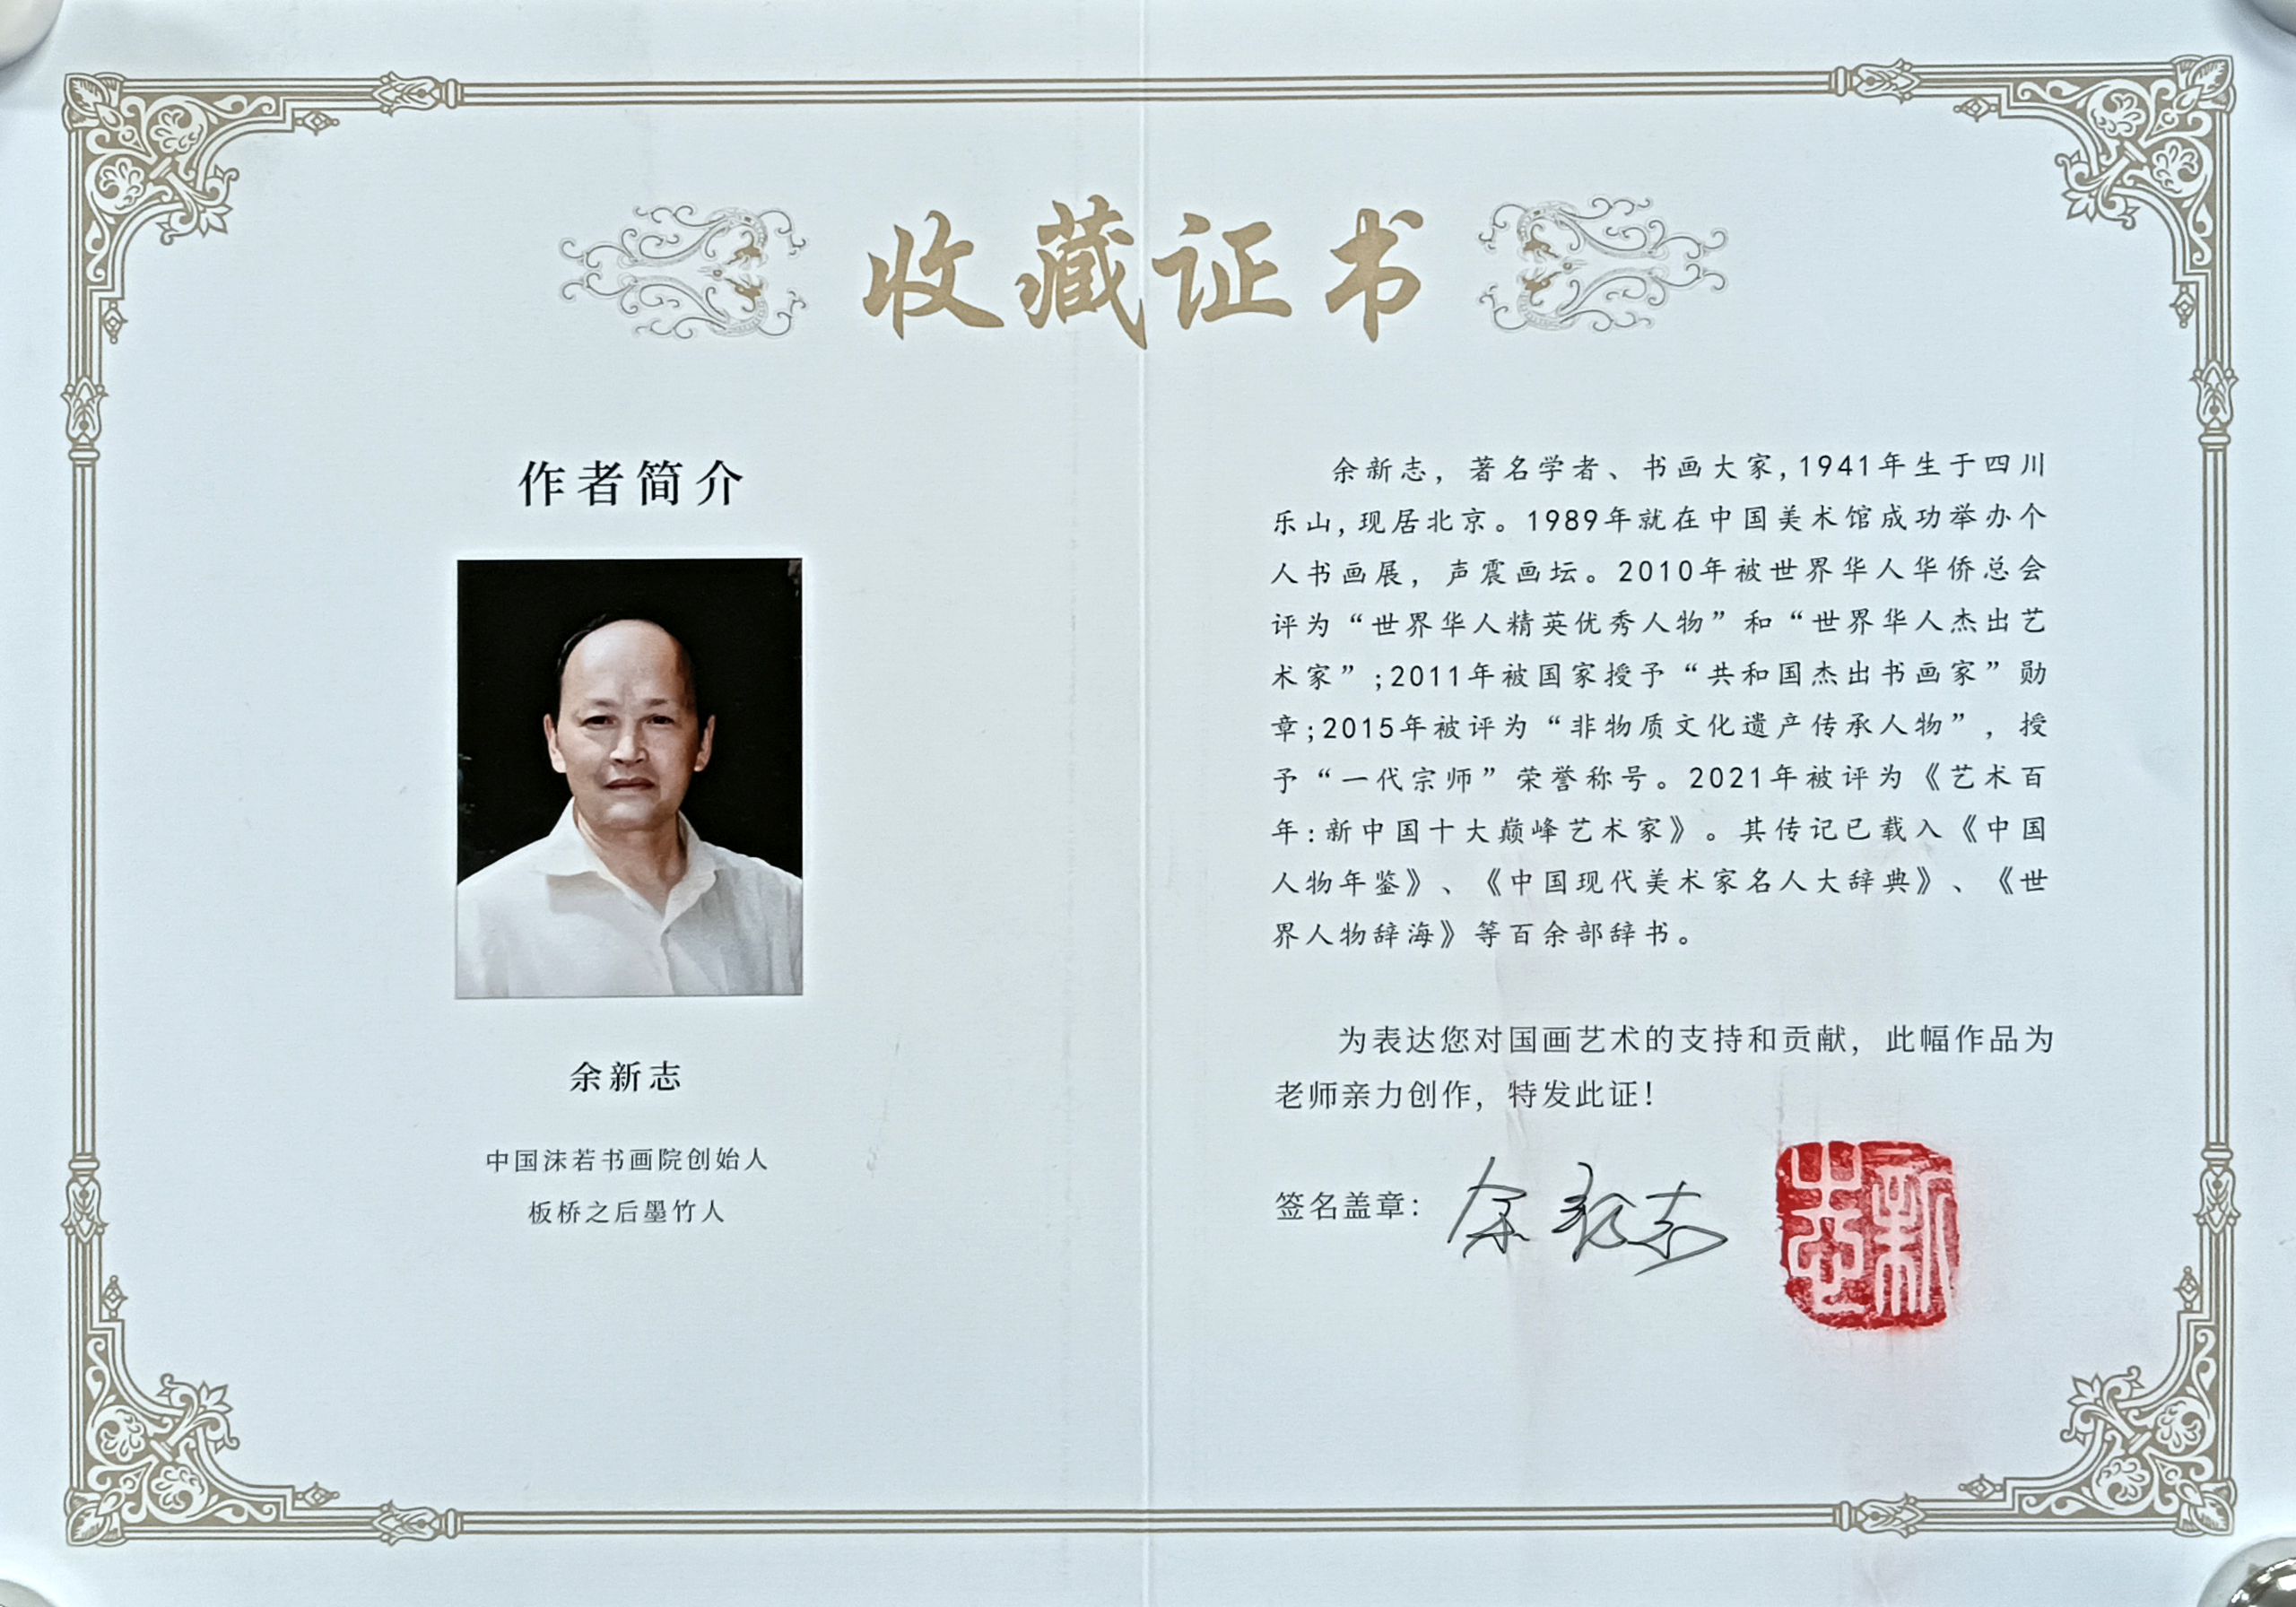 收藏证书
作者简介
余新志
中国沫若书画院创始人
板桥之后墨竹人
余新志，著名学者、书画大家,1941年生于四川
乐山,现居北京。1989年就在中国美术馆成功举办个
人书画展，声震画坛。2010年被世界华人华侨总会
评为“世界华人精英优秀人物”和“世界华人杰出艺
术家”;2011年被国家授予“共和国杰出书画家”勋
章;2015年被评为“非物质文化遗产传承人物”，授
予“一代宗师”荣誉称号。2021年被评为《艺术百
年:新中国十大巅峰艺术家》。其传记已载入《中国
人物年鉴》、《中国现代美术家名人大辞典》、《世
界人物辞海》等百余部辞书。
为表达您对国画艺术的支持和贡献，此幅作品为
老师亲力创作，特发此证！
签名盖章：余新志
新志